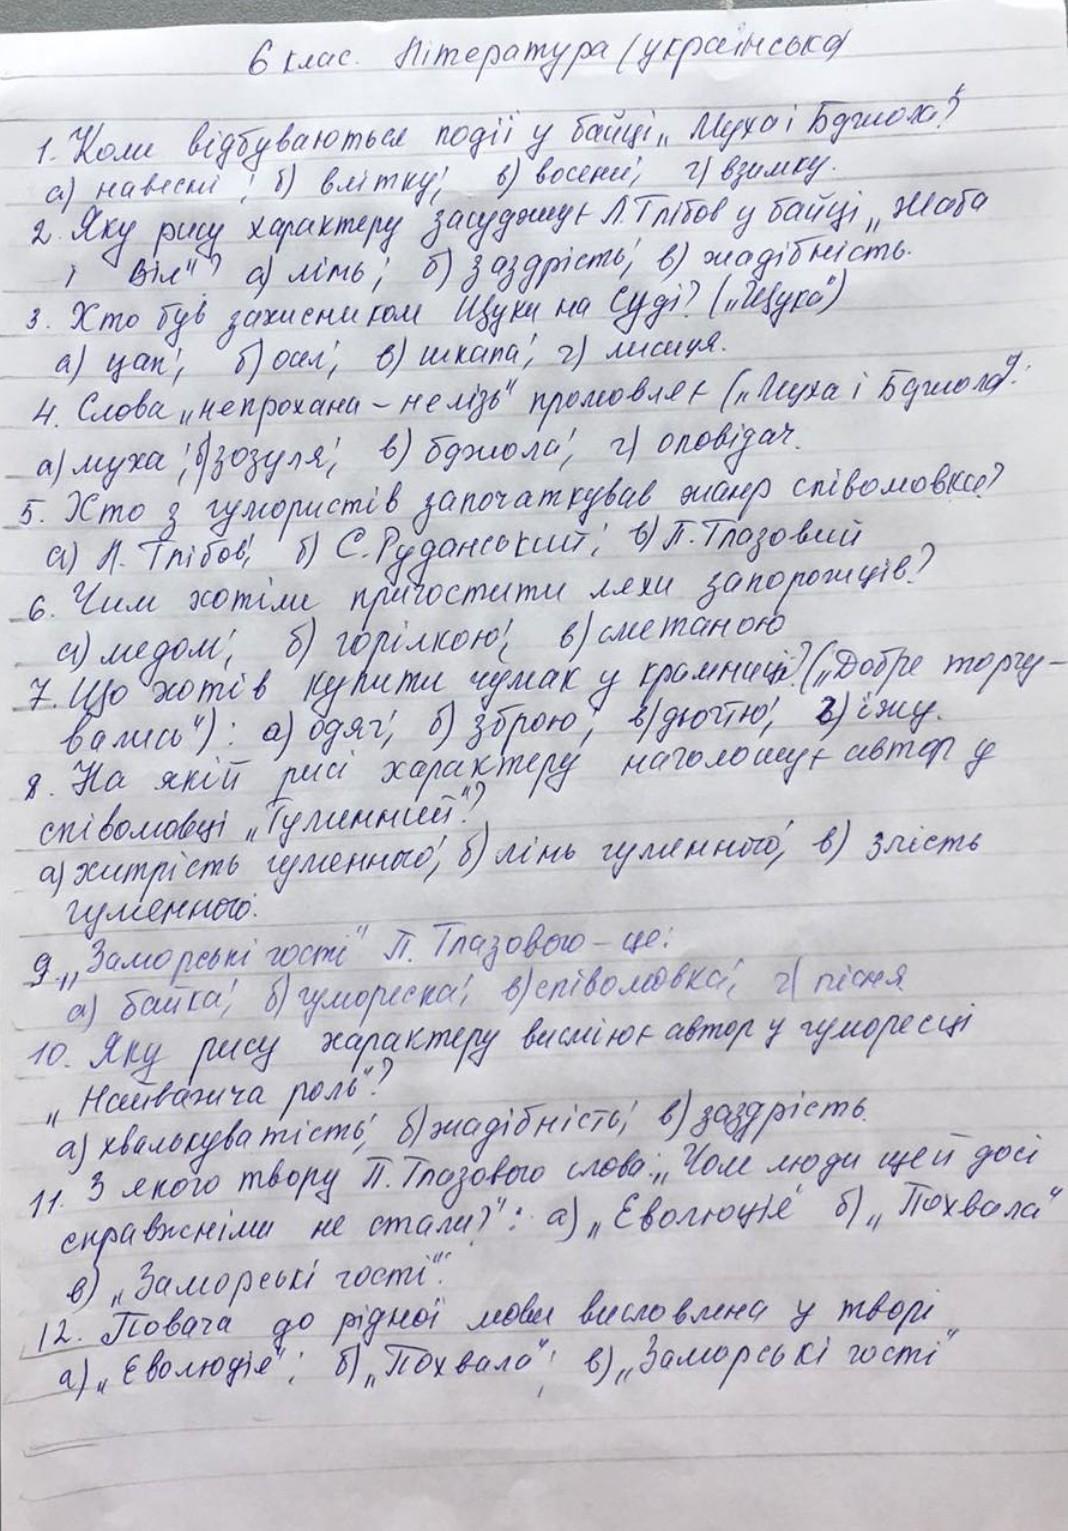 6 клас. Література (українська)
1. Коли відбуваються події у байці „Муха і Бджола"?
а) навесні; б) влітку; в) восени; г) взимку.
2. Яку рису характеру засуджує Л. Глібов у байці „Жаба
і Віл"? а) лінь; б) заздрість; в) жадібність.
3. Хто був захисником Щуки на суді? („Щука")
а) цап; б) осел; в) шкапа; г) лисиця.
4. Слова „непрохана – не лізь" промовляє („Муха і Бджола"):
а) муха; б) зозуля; в) бджола; г) оповідач.
5. Хто з гумористів започаткував жанр співомовки?
а) Л. Глібов; б) С. Руданський; в) П. Глазовий
6. Чим хотіли пригостити ляхи запорожців?
а) медом; б) горілкою; в) сметаною
7. Що хотів купити чумак у крамниці? („Добре торгу-
вались"): а) одяг; б) зброю; в) дьогтю; г) їжу.
8. На якій рисі характеру наголошує автор у
співомовці „Гуменний"?
а) хитрість гуменного; б) лінь гуменного; в) злість
гуменного.
9. „Заморські гості" П. Глазового – це:
а) байка; б) гумореска; в) співомовка; г) пісня
10. Яку рису характеру висміює автор у гуморесці
„Найважча роль"?
а) хвалькуватість; б) жадібність; в) заздрість.
11. З якого твору П. Глазового слова: „Чом люди щей досі
справжніми не стали?": а) „Еволюція" б) „Похвала"
в) „Заморські гості".
12. Повага до рідної мови висловлена у творі
а) „Еволюція"; б) „Похвала"; в) „Заморські гості"